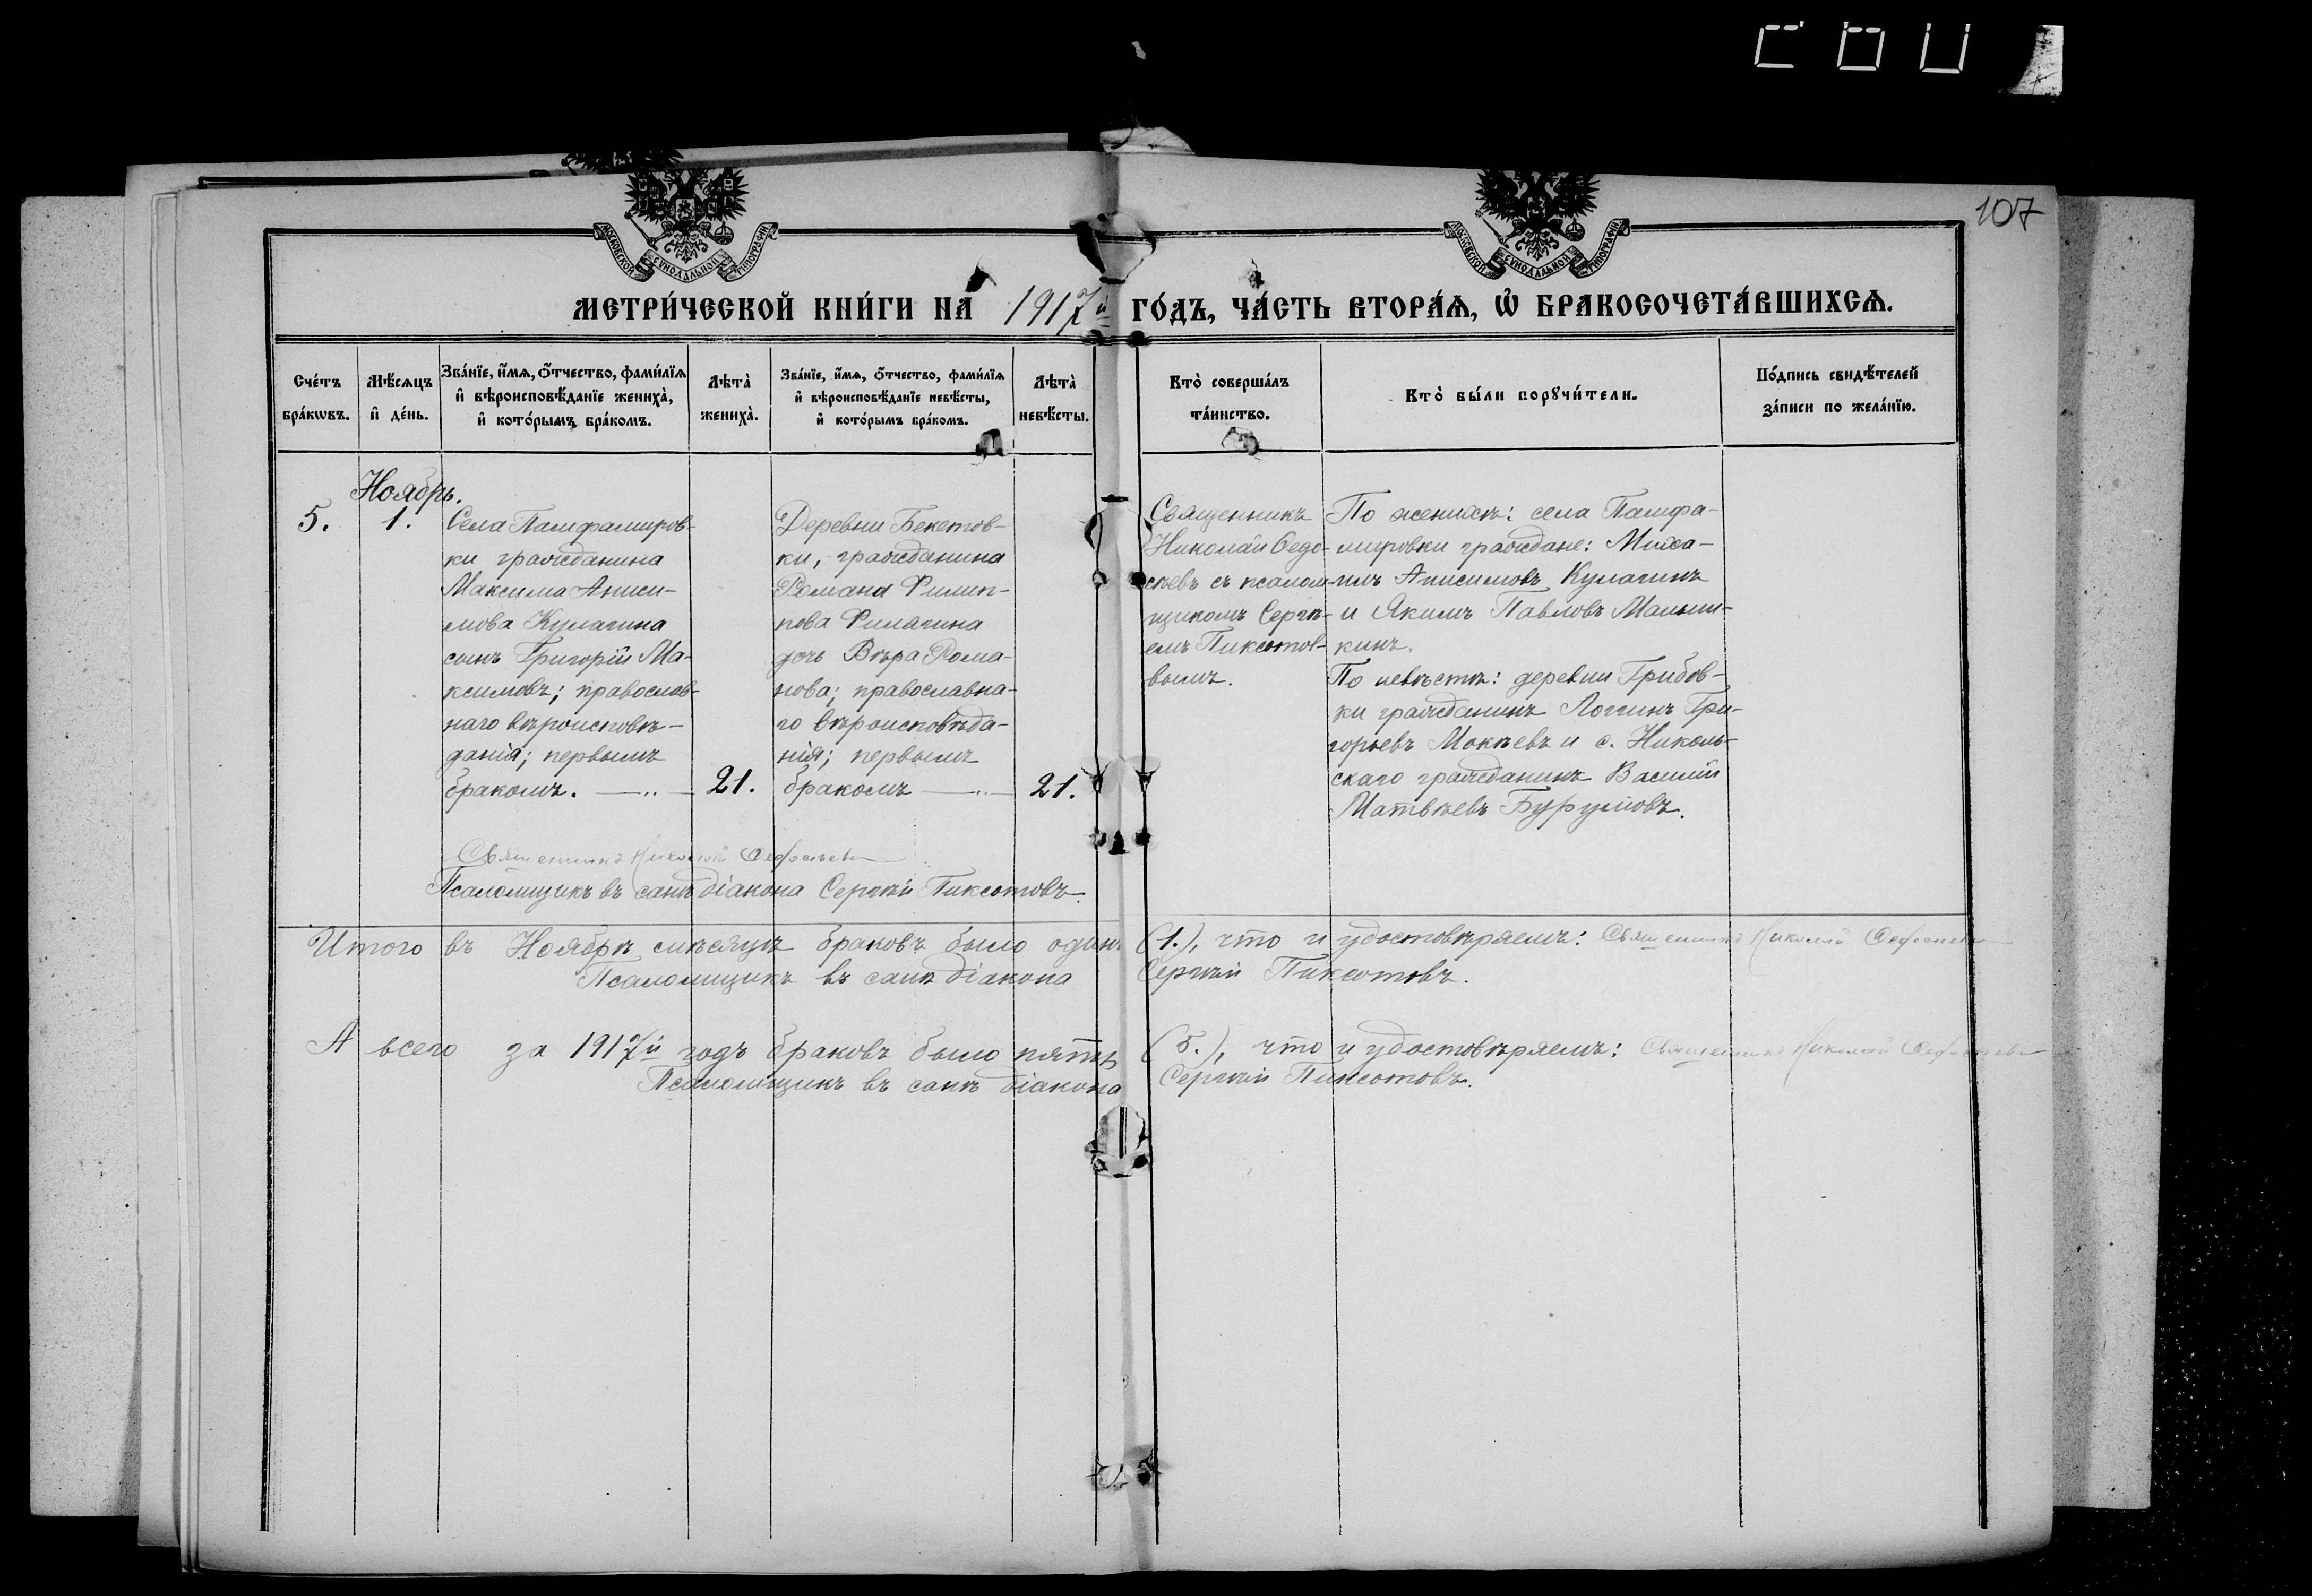 107
МОСКОВСКОЙ СѴНОДАЛЬНОЙ ТИПОГРАФІИ
МОСКОВСКОЙ СѴНОДАЛЬНОЙ ТИПОГРАФІИ
МЕТРИ́ЧЕСКОЙ КНИ́ГИ НА̀ 1917й ГО́ДЪ, ЧА́СТЬ ВТОРА́Ѧ, Ѡ҆ БРАКОСОЧЕТА́ВШИХСѦ.
Сче́тъ бра́кѡвъ.
Мѣ́сѧцъ и҆ де́нь.
Зва́нїе, и҆́мѧ, ѻ҆́тчество, фами́лїѧ и҆ вѣроисповѣ́данїе жениха̀, и҆ кото́рымъ бра́комъ.
Лѣта̀ жениха̀.
Зва́нїе, и҆́мѧ, ѻ҆́тчество, фами́лїѧ и҆ вѣроисповѣ́данїе невѣ́сты, и҆ кото́рымъ бра́комъ.
Лѣта̀ невѣ́сты.
Кто̀ соверша́лъ та́инство.
Кто̀ бы́ли порꙋчи́тели.
По́дпись свидѣ́телей за́писи по жела́нїю.
Ноябрь.
5.
1.
Села Памфамиров-
ки гражданина
Максима Аниси-
мова Кулагина
сынъ Григорій Ма-
ксимовъ; православ-
наго вѣроисповѣ-
данія; первымъ
бракомъ.
21.
Деревни Бекетов-
ки, гражданина
Романа Филип-
пова Филагина
дочь Вѣра Рома-
нова; православна-
го вѣроисповѣда-
нія; первымъ
бракомъ
21.
Священникъ
Николай Ѳедо-
сѣевъ съ псалом-
щикомъ Сергѣ-
емъ Пиксотов-
вымъ.
По женихѣ: села Памфа-
мировки граждане: Миха-
илъ Анисимовъ Кулагинъ
и Якимъ Павловъ Маньши-
кинъ.
По невѣстѣ: деревни Грибов-
ки гражданинъ Логгинъ Гри-
горьевъ Мокѣевъ и с. Николь-
скаго гражданинъ Василій
Матвѣевъ Бурумовъ.
Священникъ Николай Ѳедосѣевъ
Псаломщикъ въ санѣ діакона Сергѣй Пиксотовъ.
Итого въ Ноябрѣ мѣсяцѣ браковъ было одинъ (1.), что и удостовѣряемъ: Священникъ Николай Ѳедосѣевъ
Псаломщикъ въ санѣ діакона Сергѣй Пиксотовъ.
А всего за 1917й годъ браковъ было пять (5.), что и удостовѣряемъ: Священникъ Николай Ѳедосѣевъ
Псаломщикъ въ санѣ діакона Сергѣй Пиксотовъ.